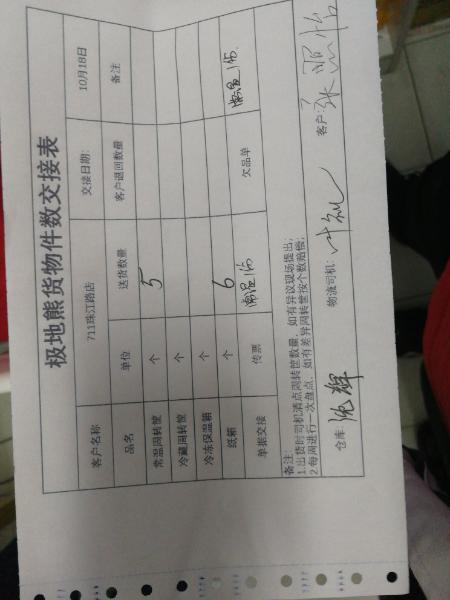 极地熊货物件数交接表
客户名称 711珠江路店 交接日期: 10月18日
品名 单位 送货数量 客户退回数量 备注
常温周转筐 个 5
冷藏周转筐 个
冷冻保温箱 个
纸箱 个 6
单据交接 传票 常温1份 欠品单 常温1份
备注:
1.出货时司机清点周转筐数量,如有异议现场提出;
2.每周进行一次盘点,如有差异周转筐按个数赔偿;
仓库: 物流司机: 客户